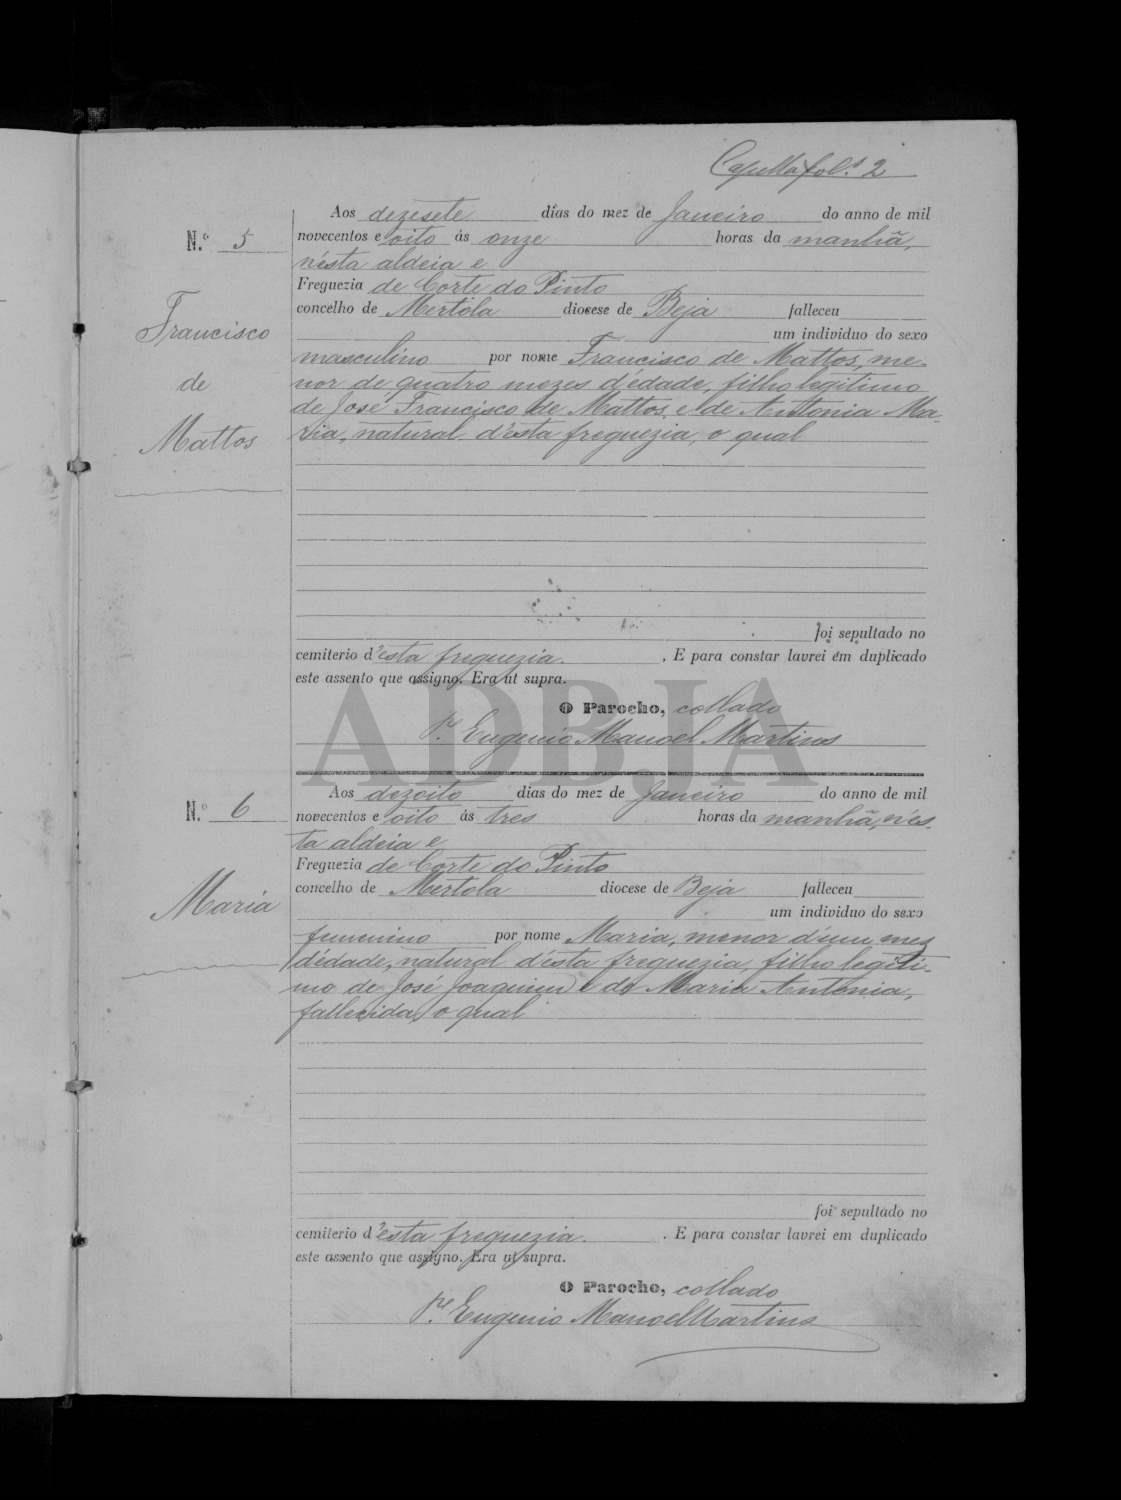 fol. 2
Aos dezesete dias do mez de Janeiro do anno de mil
N.º 5
novecentos e oito ás onze horas da manhã,
n'ésta aldeia e
Freguezia de Corte do Pinto
concelho de Mertola diocese de Beja falleceu
Francisco
de
Mattos
um individuo do sexo
masculino por nome Francisco de Mattos, me-
nor de quatro mezes d'édade, filho legitimo
de José Francisco de Mattos e de Antonia Ma-
ria, natural d'ésta freguezia, o qual
foi sepultado no
cemiterio d'ésta freguezia. . E para constar lavrei em duplicado
este assento que assigno. Era ut supra.
O Parocho, collado
P.e Eugenio Manoel Martins
ADBJA
Aos dezoito dias do mez de Janeiro do anno de mil
N.º 6
novecentos e oito ás tres horas da manhã, n'és-
ta aldeia e
Freguezia de Corte do Pinto
concelho de Mertola diocese de Beja falleceu
Maria
um individuo do sexo
femenino por nome Maria, menor d'um mez
d'édade, natural d'ésta freguezia, filho legiti-
mo de José Joaquim e de Maria Antonia,
fallecida, o qual
foi sepultado no
cemiterio d'ésta freguezia. . E para constar lavrei em duplicado
este assento que assigno. Era ut supra.
O Parocho, collado
P.e Eugenio Manoel Martins